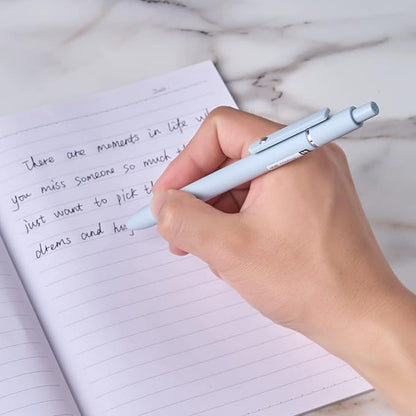 There are moments in life w
you miss someone so much th
just want to pick th
drems and hu